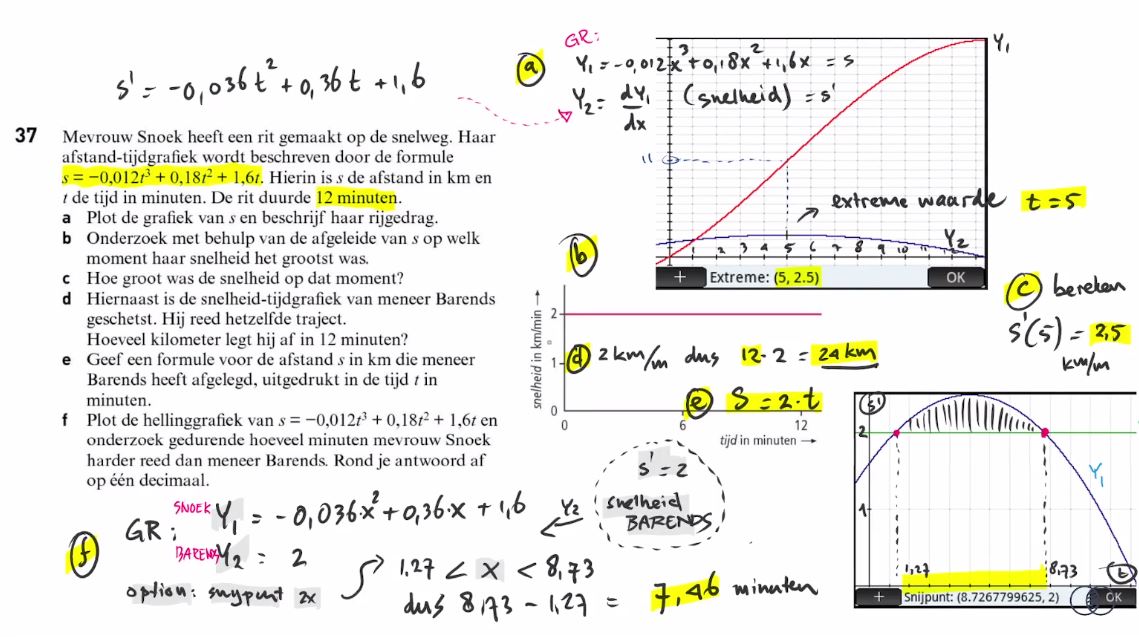 s' = -0,036t² + 0,36t + 1,6
a
GR:
Y₁ = -0,012x³ + 0,18x² + 1,6x = s
Y₂ = dY₁/dx (snelheid) = s'
Y₁
11
extreme waarde t = 5
1 2 3 4 5 6 7 8 9 10 11
Y₂
+ Extreme: (5, 2.5) OK
37 Mevrouw Snoek heeft een rit gemaakt op de snelweg. Haar
afstand-tijdgrafiek wordt beschreven door de formule
s = −0,012t³ + 0,18t² + 1,6t. Hierin is s de afstand in km en
t de tijd in minuten. De rit duurde 12 minuten.
a Plot de grafiek van s en beschrijf haar rijgedrag.
b Onderzoek met behulp van de afgeleide van s op welk
moment haar snelheid het grootst was.
c Hoe groot was de snelheid op dat moment?
d Hiernaast is de snelheid-tijdgrafiek van meneer Barends
geschetst. Hij reed hetzelfde traject.
Hoeveel kilometer legt hij af in 12 minuten?
e Geef een formule voor de afstand s in km die meneer
Barends heeft afgelegd, uitgedrukt in de tijd t in
minuten.
f Plot de hellinggrafiek van s = −0,012t³ + 0,18t² + 1,6t en
onderzoek gedurende hoeveel minuten mevrouw Snoek
harder reed dan meneer Barends. Rond je antwoord af
op één decimaal.
b
c bereken
s'(5) = 2,5
km/m
snelheid in km/min →
2
1
0
0 6 12
tijd in minuten →
d 2 km/m dus 12·2 = 24 km
e S = 2·t
s' = 2
snelheid
BARENDS
f
GR:
SNOEK Y₁ = -0,036·x² + 0,36·x + 1,6
BARENDS Y₂ = 2
Y₂
option: snijpunt 2x
1.27 < x < 8,73
dus 8,73 - 1,27 = 7,46 minuten
s'
2
1
Y₁
1,27 8,73 t
+ Snijpunt: (8.7267799625, 2) OK